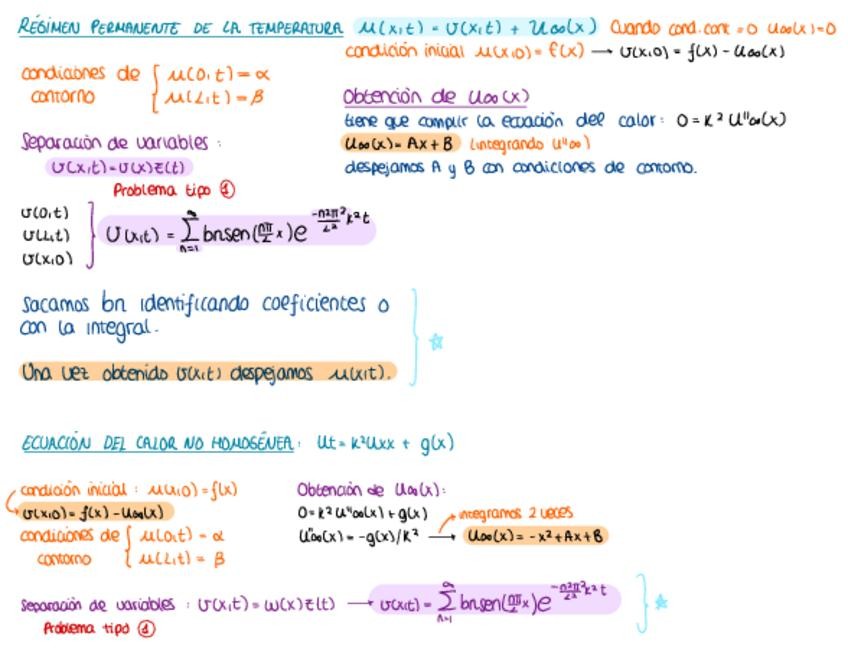 RÉGIMEN PERMANENTE DE LA TEMPERATURA u(x,t) = v(x,t) + U∞(x) Cuando cond.cont = 0 U∞(x)=0
condición inicial u(x,0) = f(x) → v(x,0) = f(x) - U∞(x)
condiciones de contorno { u(0,t) = α
u(L,t) = β
Obtención de U∞(x)
tiene que cumplir la ecuación del calor: 0 = K² U''∞(x)
U∞(x) = Ax + B (integrando U''∞)
despejamos A y B con condiciones de contorno.
Separación de variables:
v(x,t) = v(x)z(t)
Problema tipo ①
v(0,t)
v(L,t)
v(x,0)
} v(x,t) = ∑_{n=1}^{∞} bn sen(nπ/L x) e^{-n²π²/L² k² t}
Sacamos bn identificando coeficientes o
con la integral.
Una vez obtenido v(x,t) despejamos u(x,t).
} ☆
ECUACIÓN DEL CALOR NO HOMOGÉNEA: Ut = K²Uxx + g(x)
condición inicial: u(x,0) = f(x)
v(x,0) = f(x) - U∞(x)
condiciones de contorno { u(0,t) = α
u(L,t) = β
Obtención de U∞(x):
0 = K² U''∞(x) + g(x)
U''∞(x) = -g(x)/K² → integramos 2 veces
U∞(x) = -x² + Ax + B
Separación de variables: v(x,t) = w(x)z(t) → v(x,t) = ∑_{n=1}^{∞} bn sen(nπ/L x) e^{-n²π²/L² k² t} } ☆
Problema tipo ①